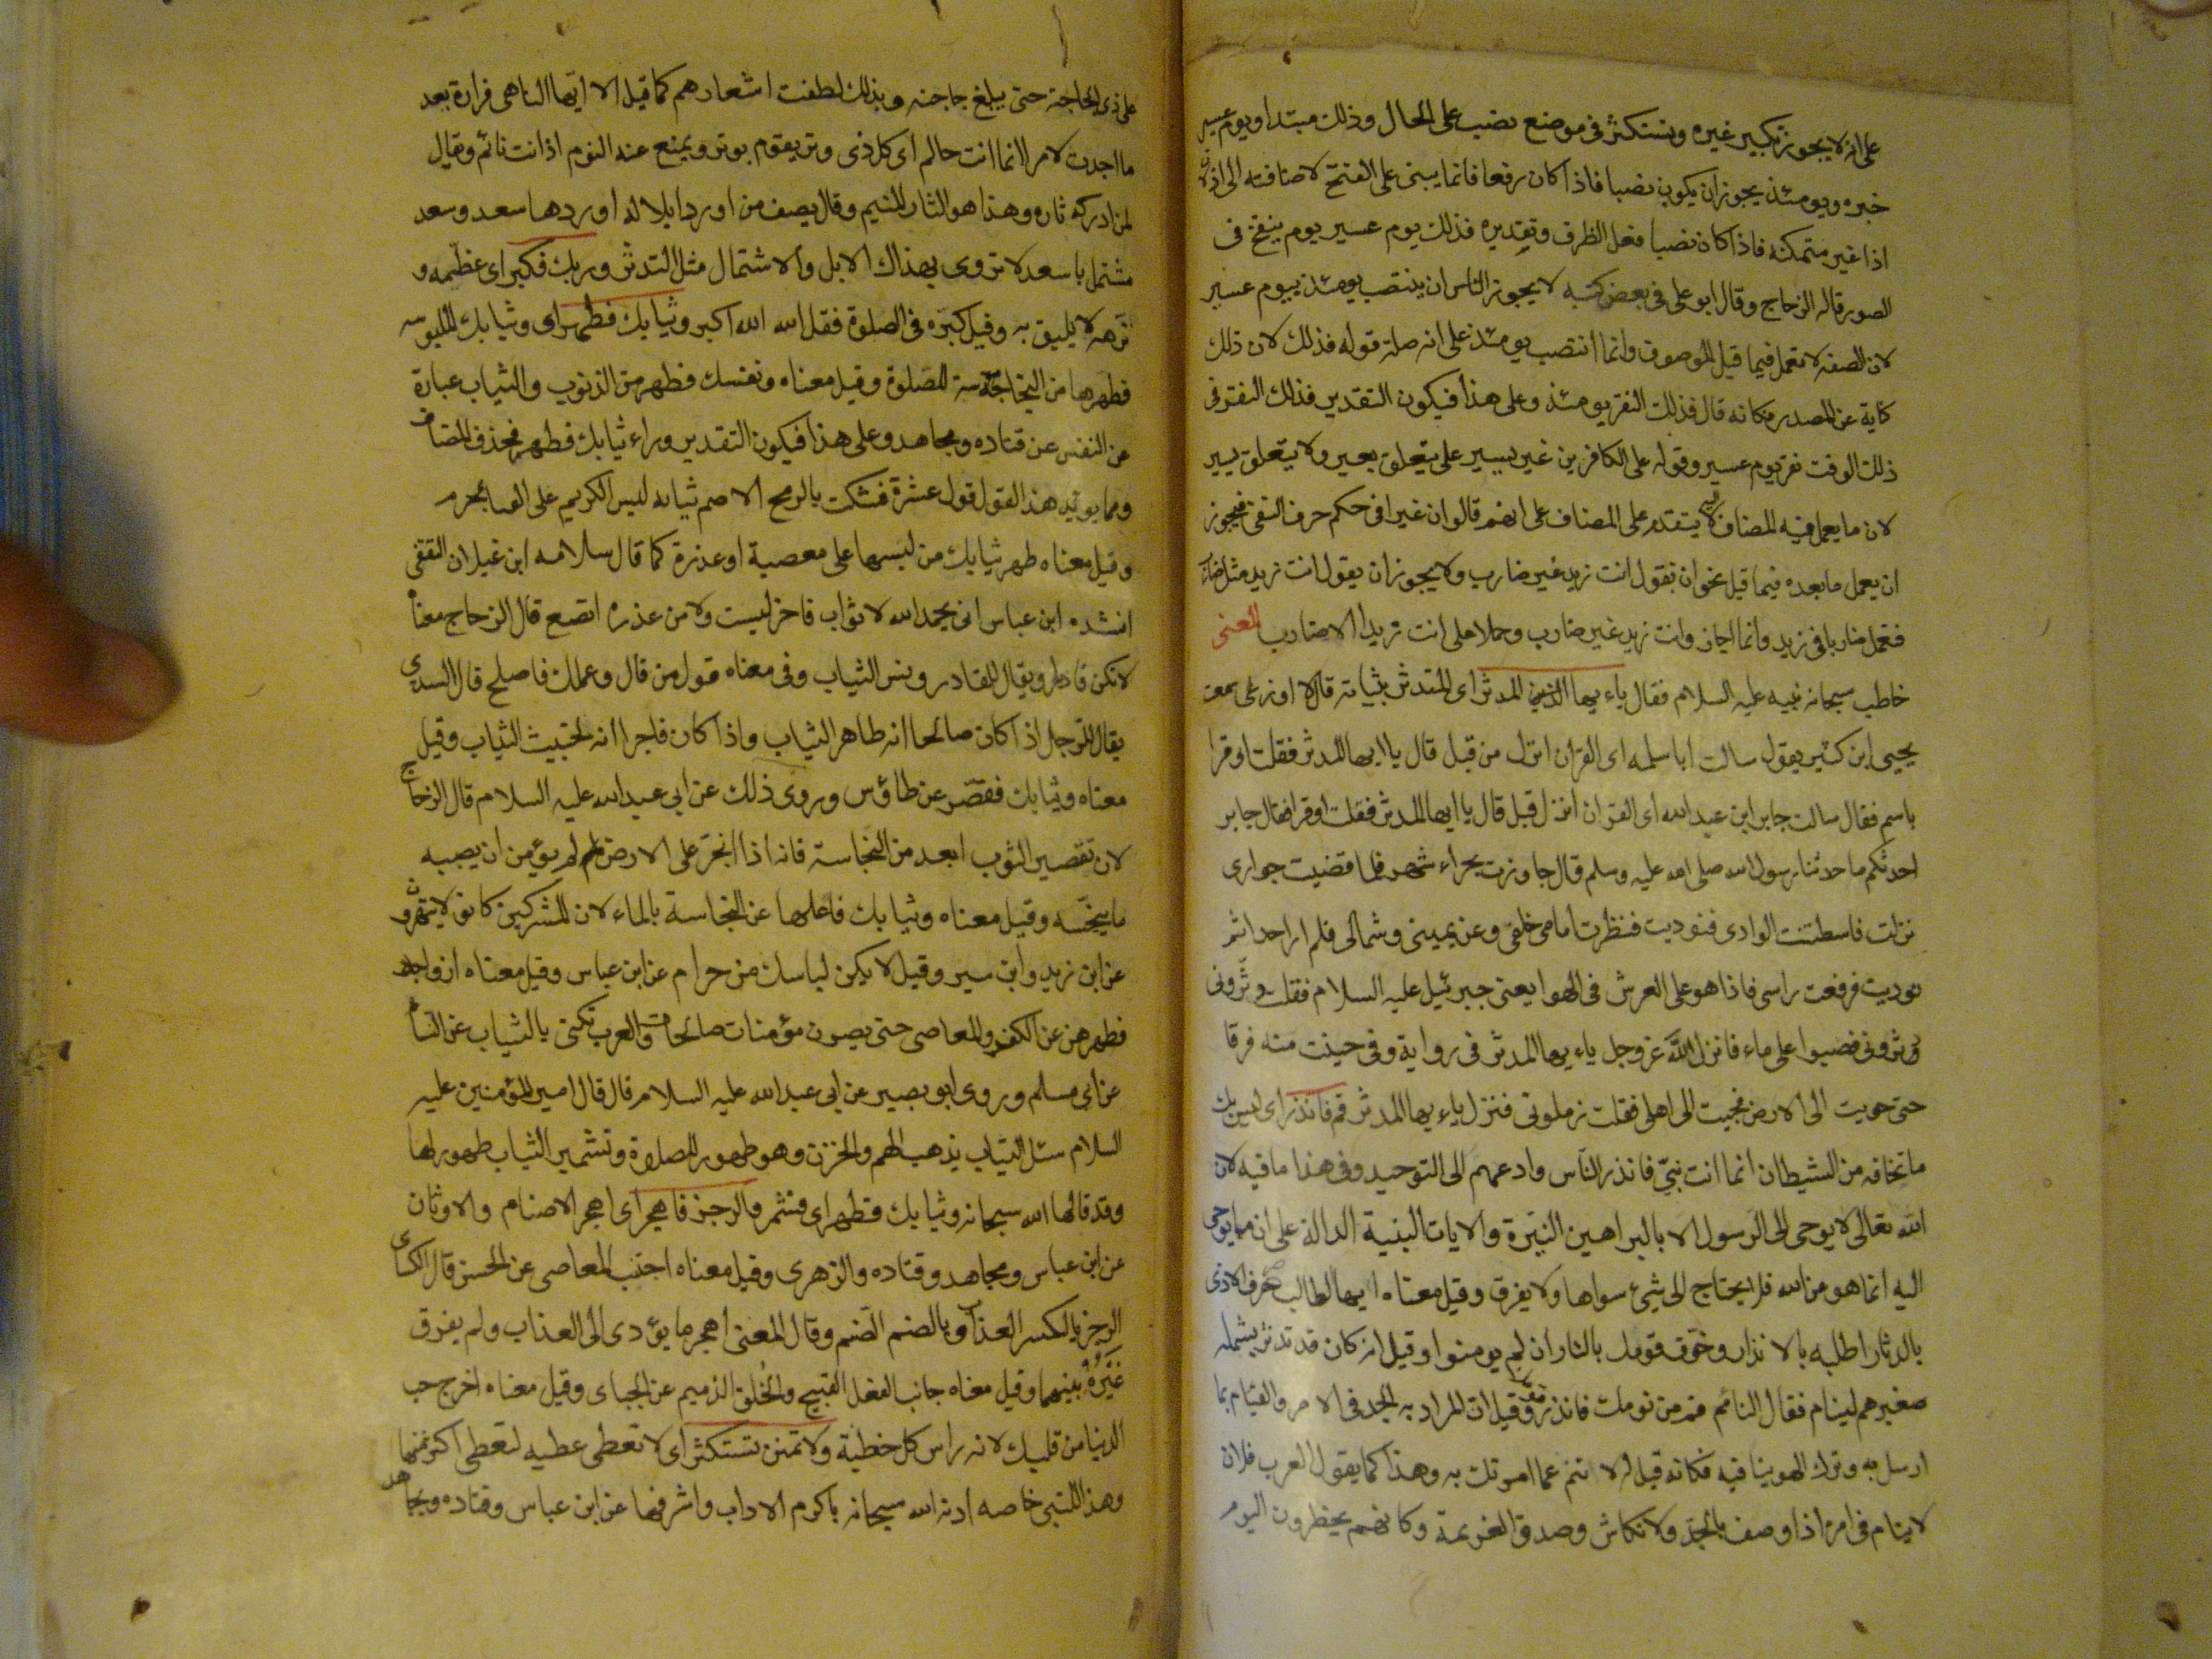 على انه لا يجوز تكبير غيره وتستكثر فى موضع نصب على الحال وذلك مبتدا ويوم عسير
خبره ويومئذ يجوز ان يكون نصبا فاذا كان رفعا فانما يبنى على الفتح لاضافته الى اذ لان
اذا غير متمكنه فاذا كان نصبا فعلى الظرف وتقديره فذلك يوم عسير يوم ينفخ فى
الصور قاله الزجاج وقال ابو على فى بعض كتبه لا يجوز الناس ان ينتصب يومئذ بيوم عسير
لان الصفه لا تعمل فيما قبل الموصوف وانما انتصب يومئذ على انه صلة قوله فذلك لان ذلك
كناية عن المصدر فكانه قال فذلك النقر يومئذ وعلى هذا فيكون التقدير فذلك النقر فى
ذلك الوقت نقر يوم عسير وقوله على الكافرين غير يسير على يتعلق بعسير ولا يتعلق بيسير
لان ما يعمل فيه المضاف اليه لا يتقدم على المضاف على انهم قالوا ان غيرا فى حكم حرف النفى فيجوز
ان يعمل ما بعده فيما قبل نحو ان تقول انت زيد غير ضارب ولا يجوز ان يقول انت زيد مثل ضارب
فتعمل ضاربا فى زيد وانما اجاز وانت زيد غير ضارب وحملا على انت زيدا لا ضارب المعنى
خاطب سبحانه نبيه عليه السلام فقال ياءيها المدثر اى المتدثر بثيابه قال الاوزاعى سمعت
يحيى ابن كثير يقول سالت ابا سلمه اى القران انزل من قبل قال يا ايها المدثر فقلت او قرا
باسم فقال سالت جابر ابن عبد الله اى القران انزل قبل قال يا ايها المدثر فقلت او قرا فقال جابر
احدثكم ما حدثنا رسول الله صلى الله عليه وسلم قال جاورت بحراء شهر فلما قضيت جوارى
نزلت فاستبطنت الوادى فنوديت فنظرت امامى خلفى وعن يمينى وشمالى فلم ار احدا ثم
نوديت فرفعت راسى فاذا هو على العرش فى الهوا يعنى جبرئيل عليه السلام فقلت دثرونى
دثرونى فصبوا على ماء فانزل الله عز وجل ياءيها المدثر فى رواية وفى حيثت منه فرقا
حتى هويت الى الارض فجيت الى اهلى فقلت زملونى فنزل ياءيها المدثر قم فانذر اى ليس بك
ما تخافه من الشيطان انما انت نبى فانذر الناس وادعهم الى التوحيد وفى هذا ما فيه لان
الله تعالى لا يوحى الى الرسول الا بالبراهين النيرة والايات البينية الدالة على ان ما يوحى
اليه انما هو من الله فلا يحتاج الى شيء سواها ولا يفرق وقيل معناه ايها الطالب صرف الاذى
بالدثار اطلبه بالانذار وخوف قومك بالنار ان لم يومنوا وقيل انه كان قد تدثر بشمله
صغيرهم لينام فقال النائم قم من نومك فانذر قومك وقيل ان المراد به الجد فى الامر والقيام بما
ارسل به وترك الهوينا فيه فكانه قيل له لا تنم عما امرتك به وهذا كما يقول العرب فلان
لا ينام فى امره اذا وصف بالجد ولانكاش وصدق العزيمة وكانهم يحظرون اليوم
على ذى الحاجة حتى يبلغ حاجته وبذلك لطفت اشعارهم كما قيل الا ايها الناهى فزارة بعد
ما اجدت لامر انما انت حالم اى كل ذى وتر يقوم بوتر ويمنع عنه النوم اذ انت نائم وتقال
لمن ادرك ثاره وهذا هو الثار المنيم وقال يصف من اورد ابلا له اوردها سعد وسعد
مشتمل يا سعد لا تروى بهذاك الابل والاشتمال مثل التدثر وربك فكبر اى عظمه و
نزهه لا يليق به وقيل كبره فى الصلوة فقل الله الله اكبر وثيابك فطهر اى وثيابك الملبوسه
فطهرها من النجاسة للصلوة وقيل معناه ونفسك فطهر من الذنوب والثياب عبارة
عن النفس عن قتاده ومجاهد وعلى هذا فيكون التقدير وراء ثيابك فطهر فحذف المضاف
ومما يويد هذا القول قول عنترة فشككت بالرمح الاصم ثيابه ليس الكريم على القنا بمحرم
وقيل معناه طهر ثيابك من لبسها على معصية او عذرة كما قال سلامه ابن غيلان الثقفى
انشده ابن عباس انى بحمد الله لا ثواب فاخر لبست ولا من عذره اتقنع قال الزجاج معناه
لا تكن قادرا ويقال للغادر ونس الثياب وفى معناه قول من قال وعملك فاصلح قال السدى
يقال للرجل اذ اكان صالحا انه طاهر الثياب واذا كان فاجرا انه لخبيث الثياب وقيل
معناه وثيابك فقصر عن طاؤس وروى ذلك عن ابى عبد الله عليه السلام قال الزجاج
لان تقصير الثوب ابعد من النجاسة فانه اذا انجر على الارض لم يؤمن ان يصيبه
ما ينجسه وقيل معناه وثيابك فاغلها عن النجاسة بالماء لان المشركين كانو لا يتطهرون
عن ابن زيد وابن سير وقيل لا يكن لباسك من حرام عن ابن عباس وقيل معناه ازواجك
فطهرهن عن الكفر والمعاصى حتى يصون مؤمنات صالحات والعرب تكنى بالثياب عن النساء
عن ابى مسلم وروى ابو بصير عن ابى عبد الله عليه السلام قال قال امير المؤمنين عليه
السلام سئل الثياب يذهب الهم والحزن وهو طهور للصلوة وتشمير الثياب طهور لها
وقد قالها الله سبحانه وثيابك فطهر اى فشمر والرجز فاهجر اى اهجر الاصنام والاوثان
عن ابن عباس ومجاهد وقتاده والزهرى وقيل معناه اجتنب المعاصى عن الحسن قال الكسائى
الرجز بالكسر العذاب وبالضم الصنم وقال المعنى اهجر ما يؤدى الى العذاب ولم يفرق
غيره بينهما وقيل معناه جانب الفعل القبيح والخلق الذميم عن الجباى وقيل معناه اخرج حب
الدنيا من قلبك لانه راس كل خطية ولا تمنن تستكثر اى لا تعطى عطيه لتعطى اكثر منها
وهذا للنبى خاصه ادبه الله سبحانه باكرم الاداب واشرفها عن ابن عباس وقتاده ومجاهد